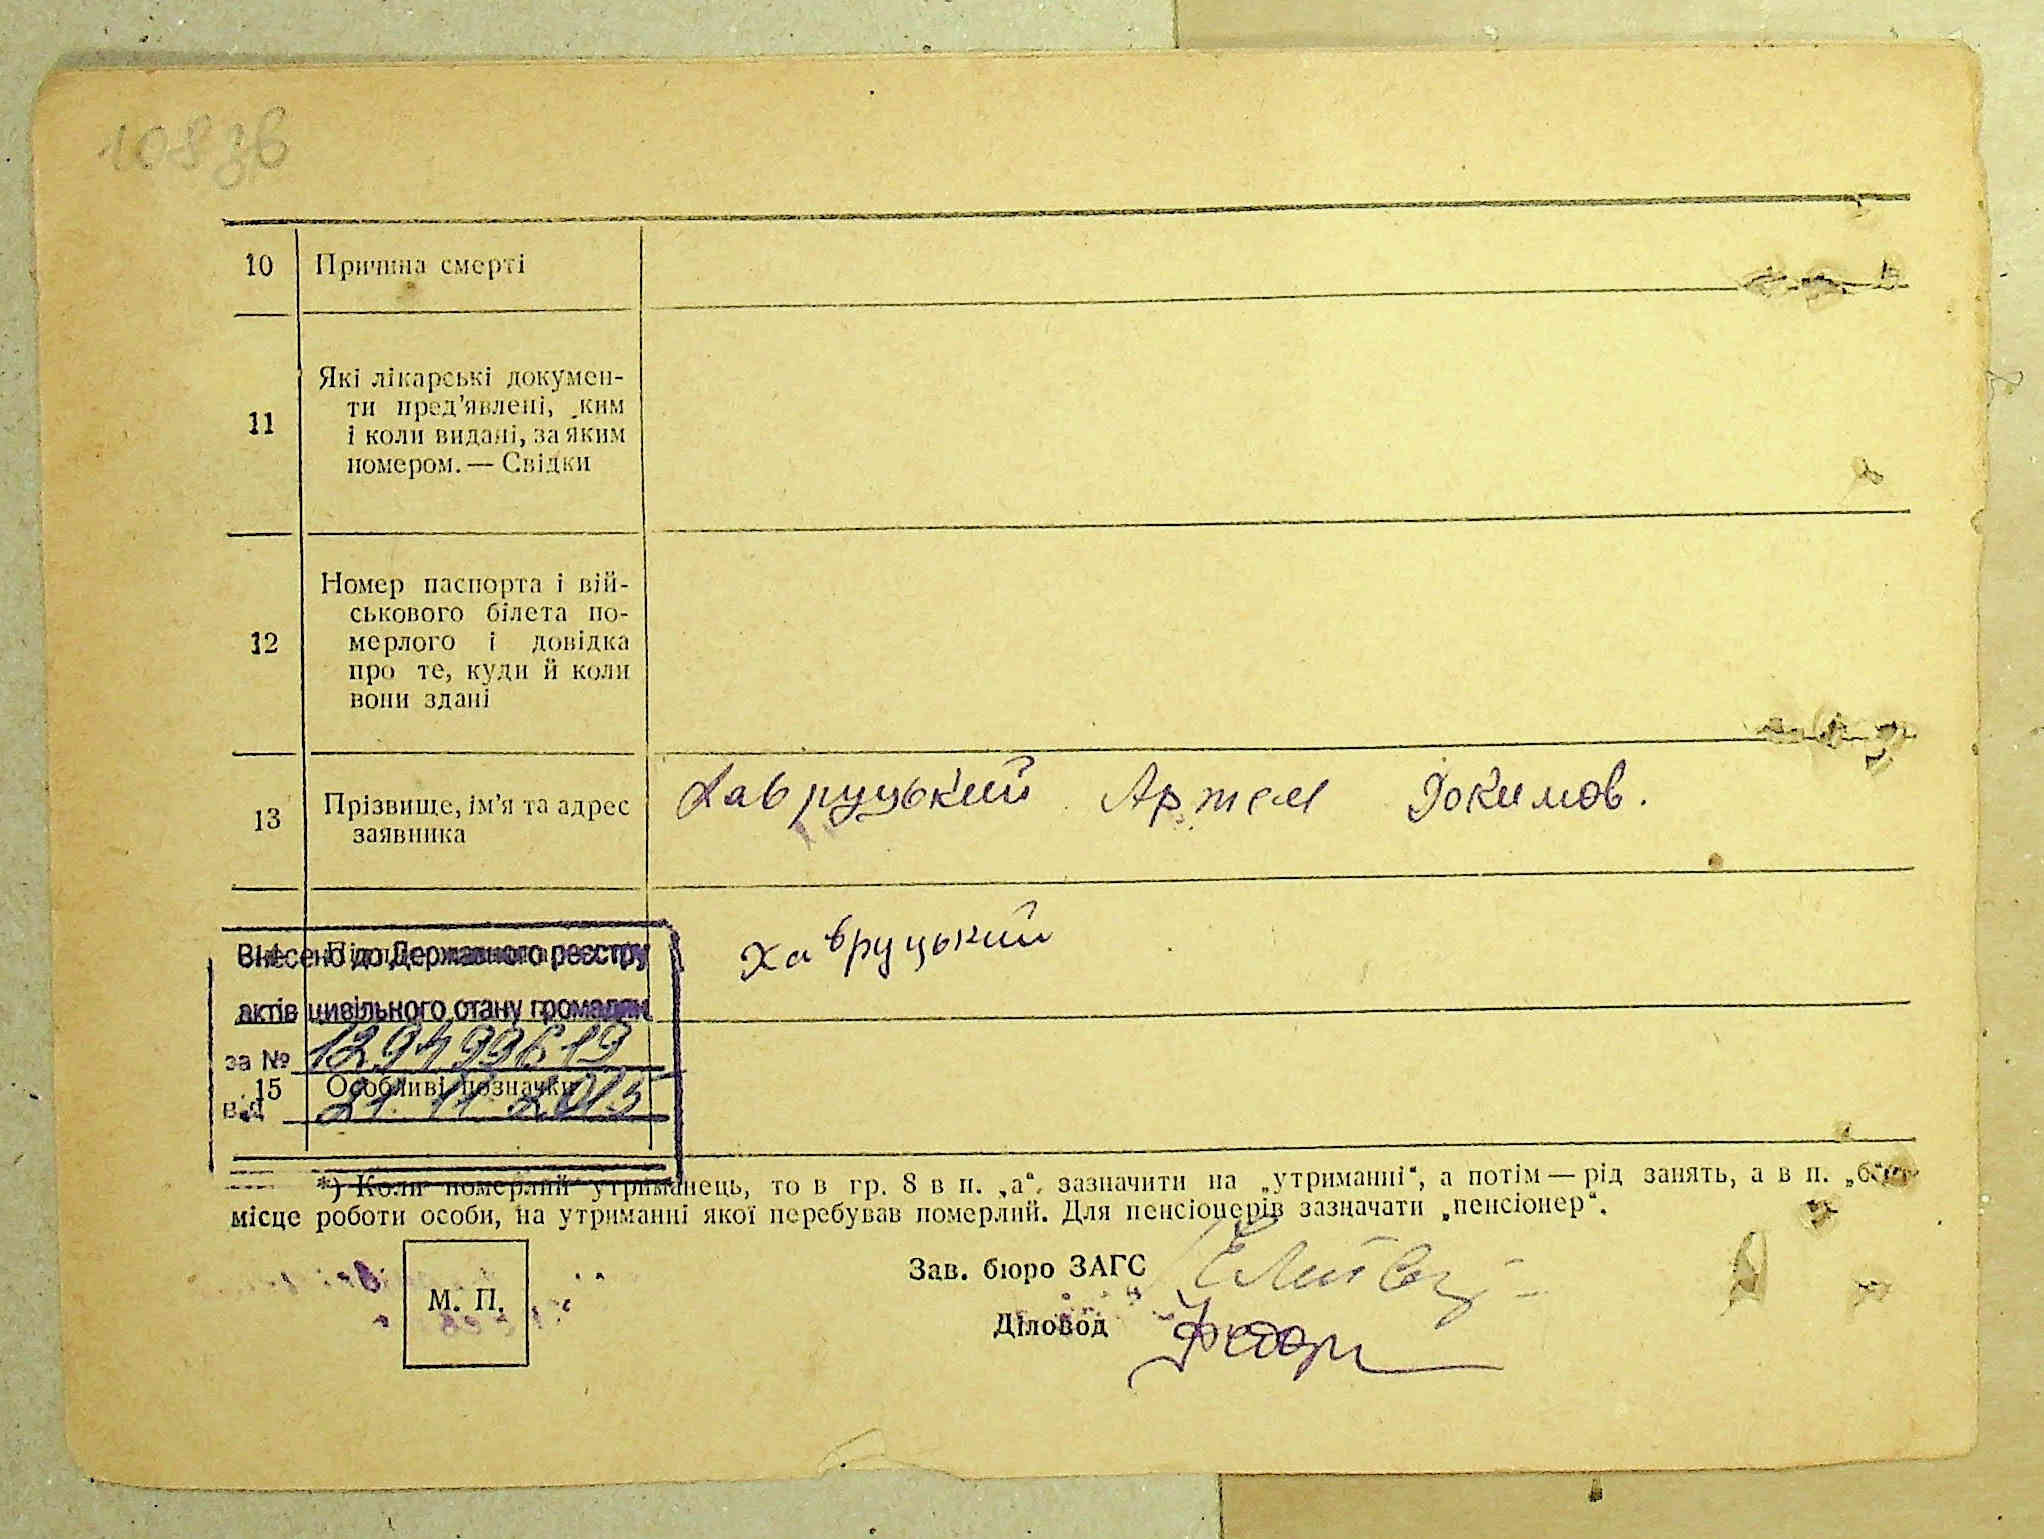 108 зв
10 Причина смерті
11 Які лікарські докумен-
ти пред'явлені, ким
і коли видані, за яким
номером. — Свідки
12 Номер паспорта і вій-
ськового білета по-
мерлого і довідка
про те, куди й коли
вони здані
13 Прізвище, ім'я та адрес
заявника
Хавруцький Артем Йокимов.
Хавруцький
Внесено до Державного реєстру
актів цивільного стану громадян
за № 129499619
15 Особливі позначки
від 21. 11 2015
*) Коли померлий утриманець, то в гр. 8 в п. „а“ зазначити на „утриманні“, а потім — рід занять, а в п. „б“
місце роботи особи, на утриманні якої перебував померлий. Для пенсіонерів зазначати „пенсіонер“.
Зав. бюро ЗАГС
М. П.
Діловод